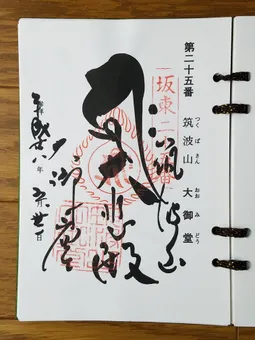 第二十五番
筑波山 大御堂
つくばさん おおみどう
坂東二十五番
筑波山
大悲殿
大御堂
平成廿八年